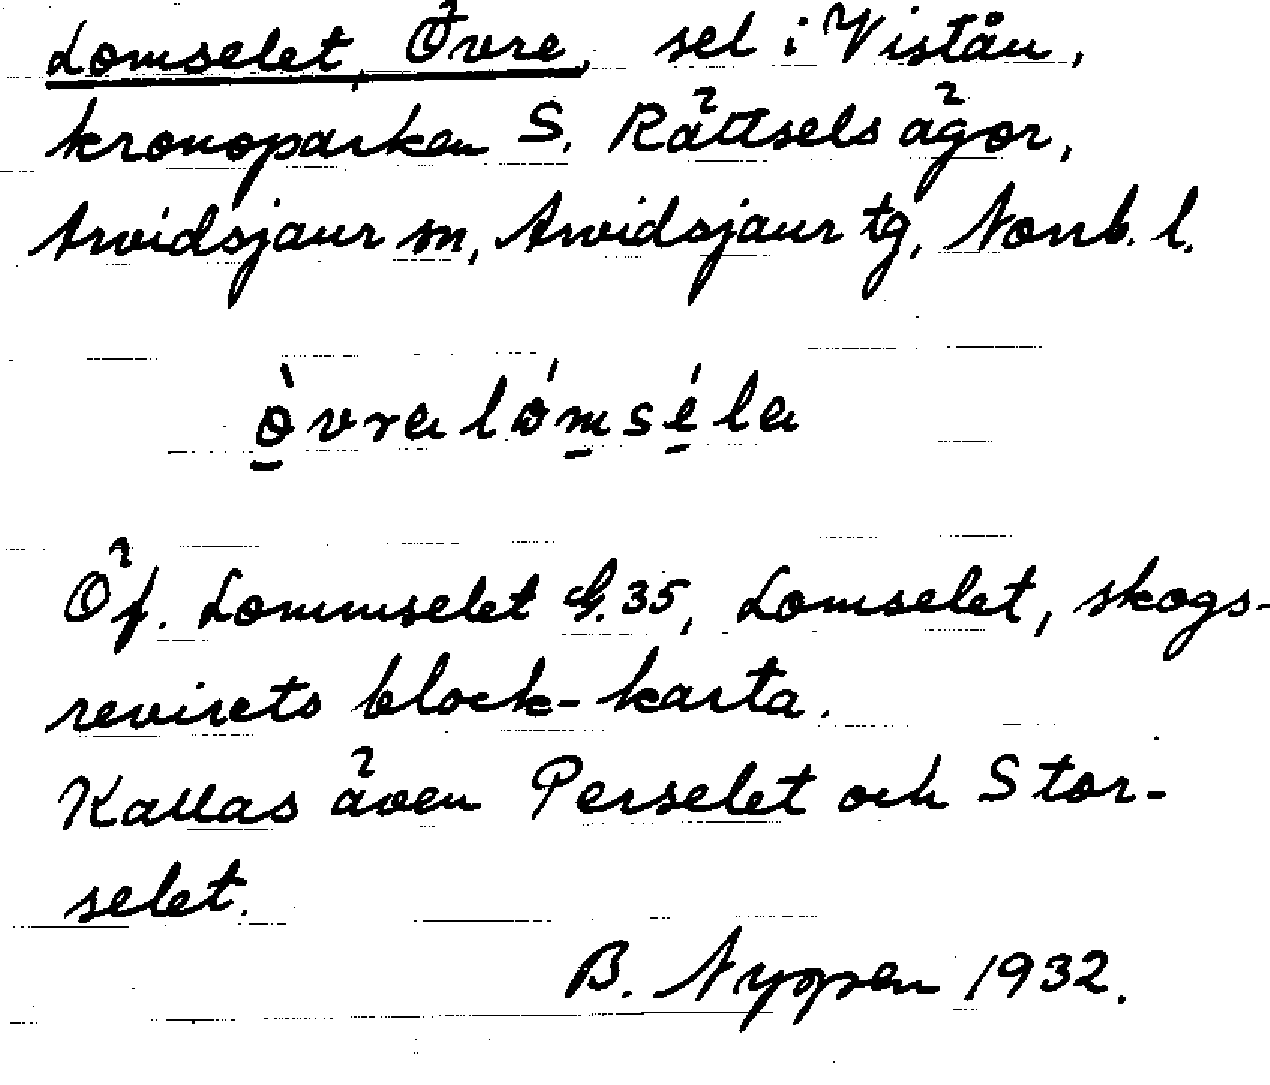 Lomselet, Övre, sel i Viståu,
kronoparken S. Rättsels ägor,
Arvidsjaur sn, Arvidsjaur tg, Norrb. l.
Öf. Lommselet G. 35, Lomselet, skogs-
revirets block-karta.
Kallas även Perselet och Stor-
selet.
B. 1932.